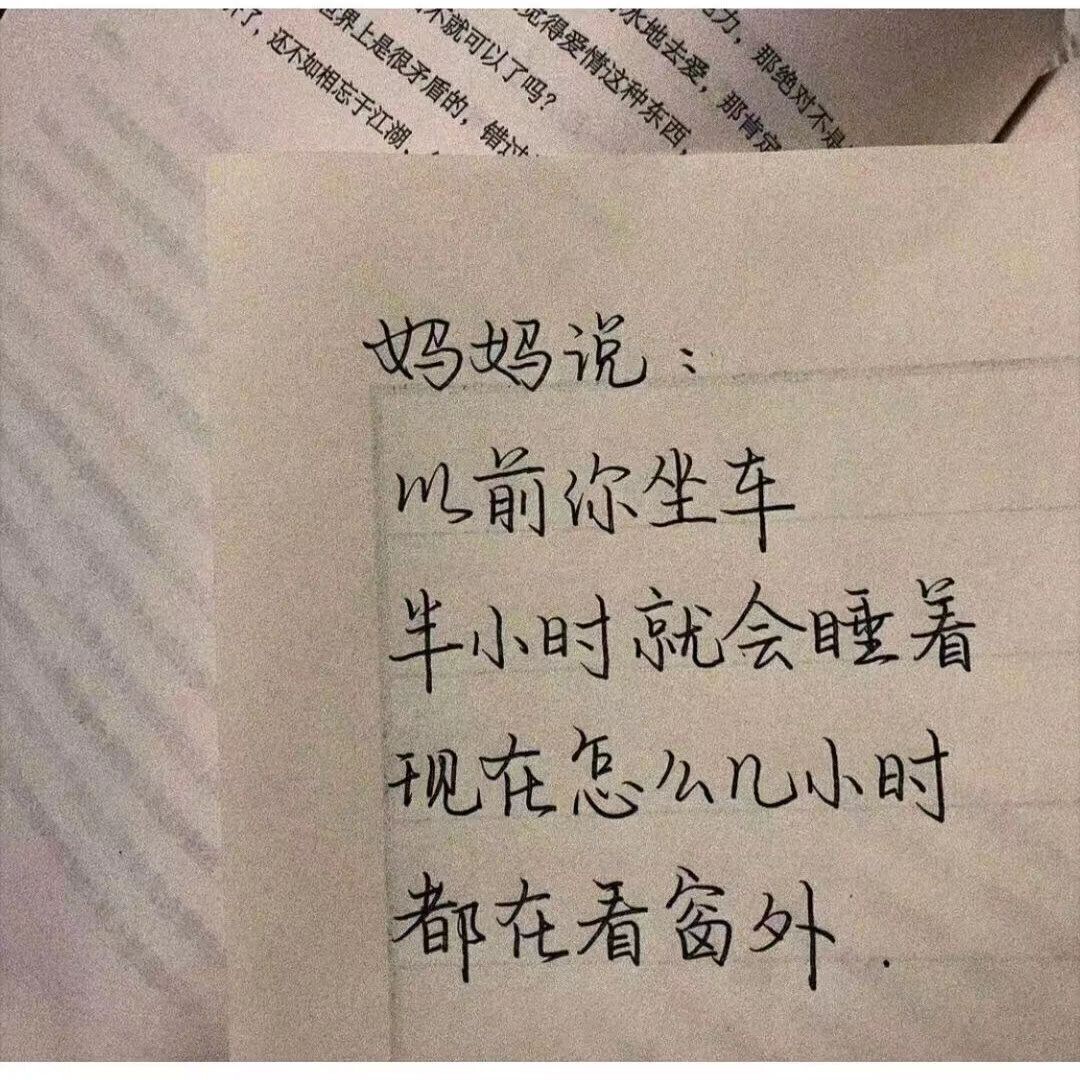 力，那绝对不是
水地去爱，那肯定
觉得爱情这种东西，
不就可以了吗？
世界上是很矛盾的，错过
了，还不如相忘于江湖，
妈妈说：
以前你坐车
半小时就会睡着
现在怎么几小时
都在看窗外.